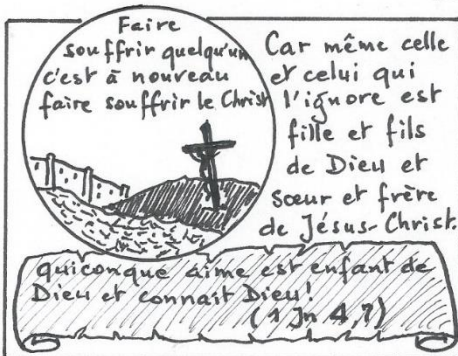 Faire
souffrir quelqu'un
c'est à nouveau
faire souffrir le Christ
Car même celle
et celui qui
l'ignore est
fille et fils
de Dieu et
sœur et frère
de Jésus-Christ.
quiconque aime est enfant de
Dieu et connait Dieu!
(1 Jn 4,7)